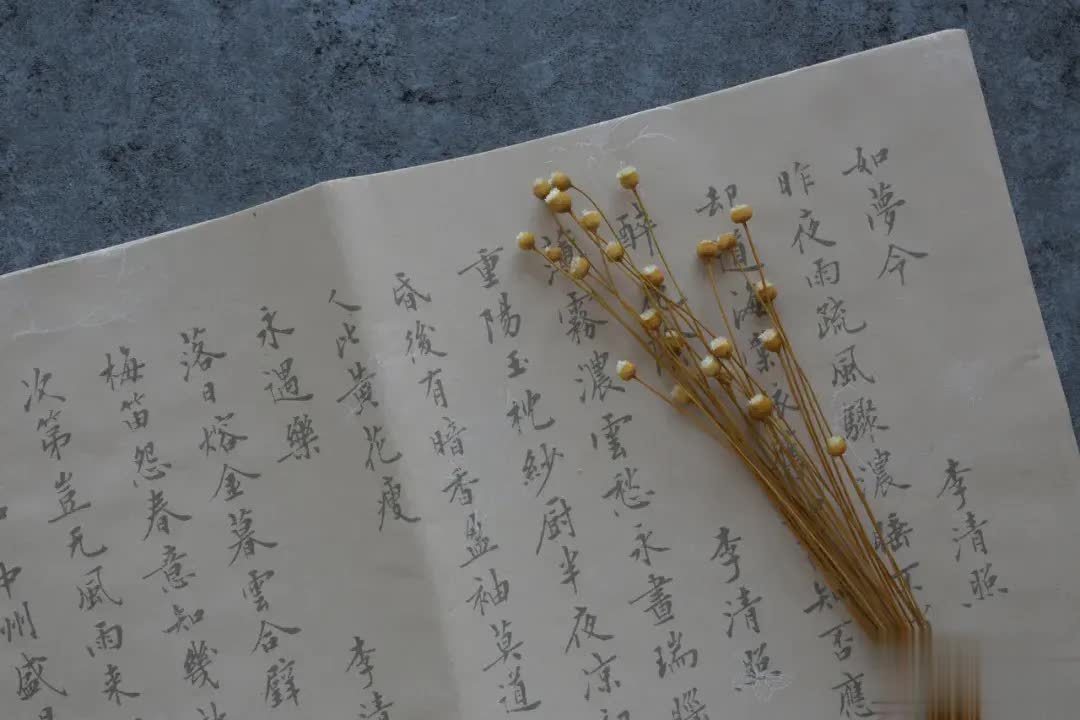 如夢令 李清照
昨夜雨疏風驟濃睡不
却道海棠依 知否應
醉 李清照
薄霧濃雲愁永晝瑞腦
重陽玉枕紗厨半夜凉初
昏後有暗香盈袖莫道
人比黃花瘦
永遇樂 李清
落日熔金暮雲合璧
梅笛怨春意知幾
次第豈无風雨来
中州盛